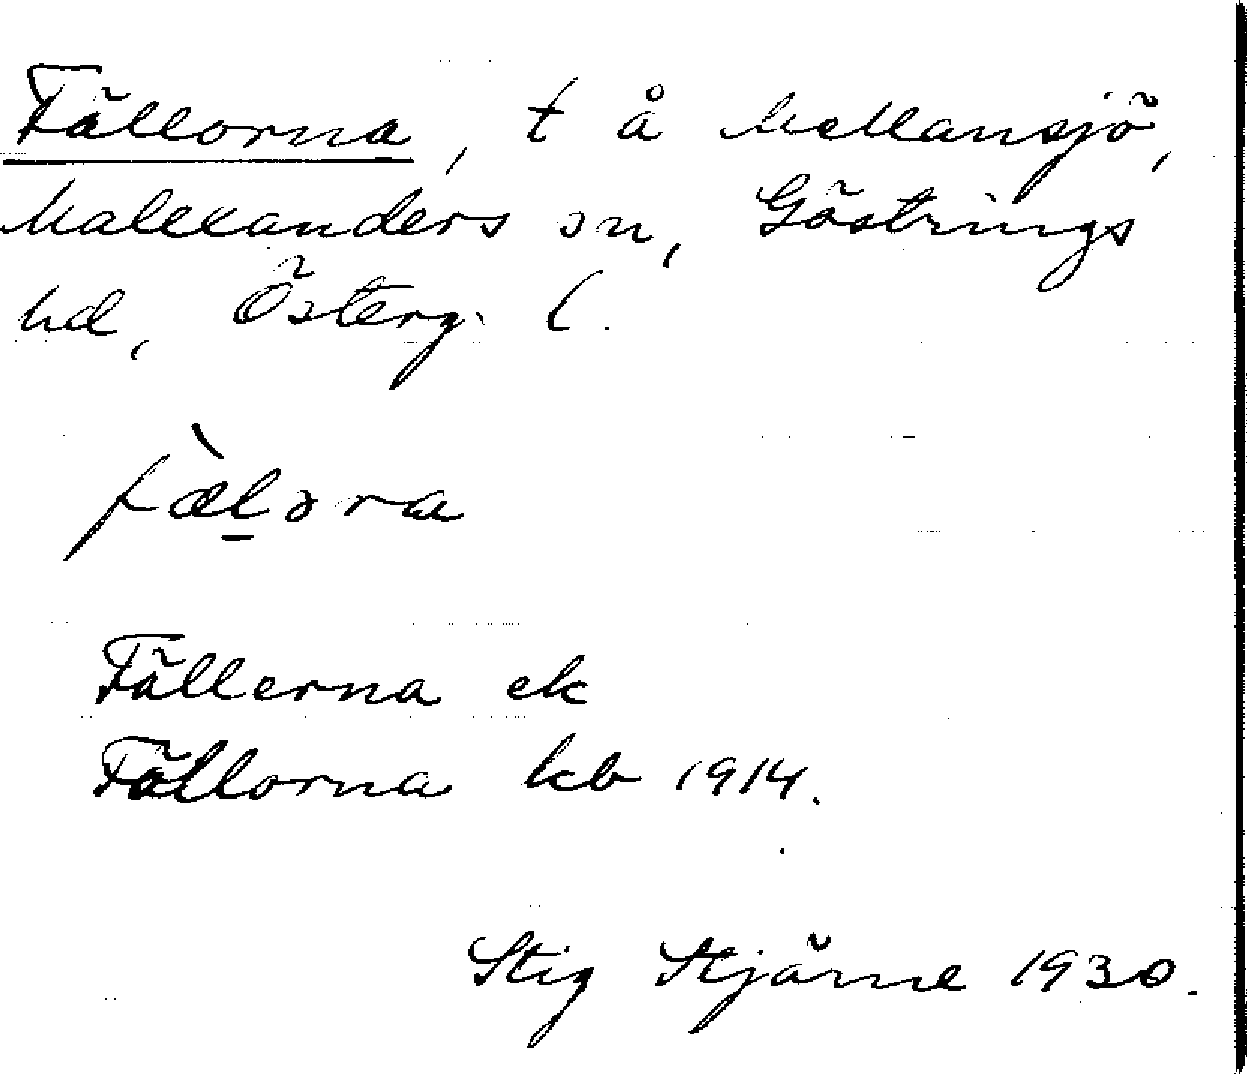 Fällorna, t å Mellansjö,
Malexanders sn, Göstrings
hd, Österg. l.
fæ̀l̠ɔra
Fällerna ek
Fällorna kb 1914.
Stig Stjärne 1930.